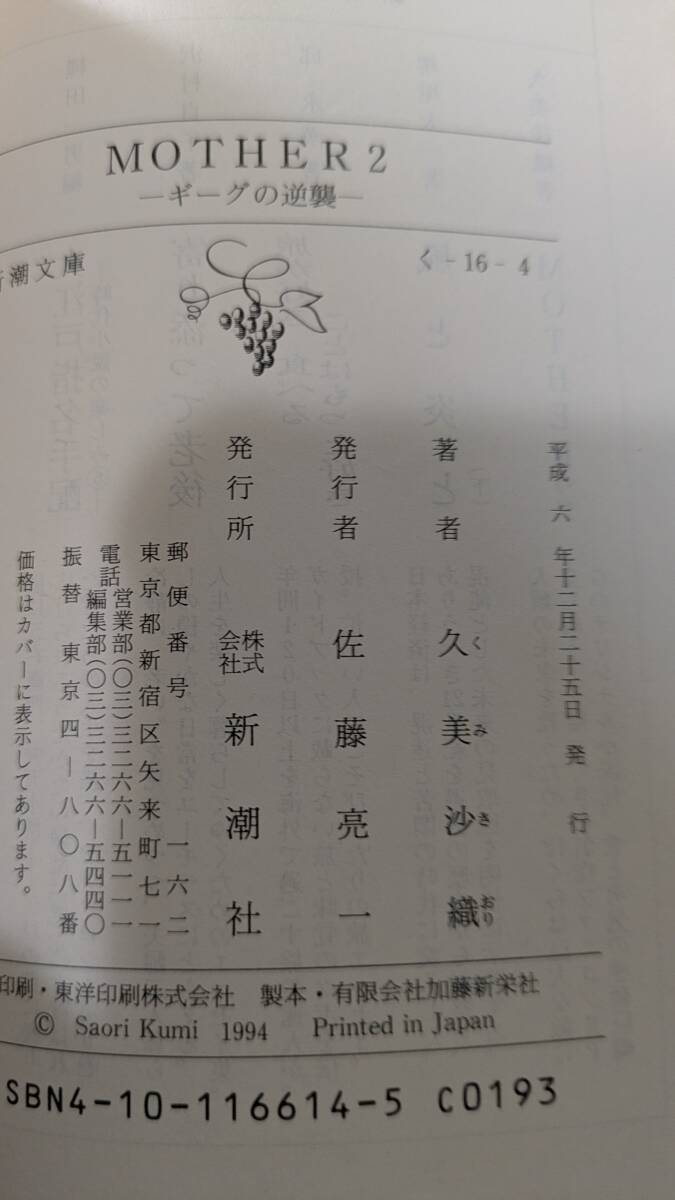 MOTHER 2
―ギーグの逆襲―
新潮文庫
く-16-4
平成六年十二月二十五日発行
著者 久美沙織
く み さ おり
発行者 佐藤亮一
発行所 株式会社 新潮社
郵便番号 一六二
東京都新宿区矢来町七一
電話 営業部(〇三)三二六六―五一一一
編集部(〇三)三二六六―五四四〇
振替 東京四―八〇八番
価格はカバーに表示してあります。
印刷・東洋印刷株式会社 製本・有限会社加藤新栄社
© Saori Kumi 1994 Printed in Japan
ISBN4-10-116614-5 C0193